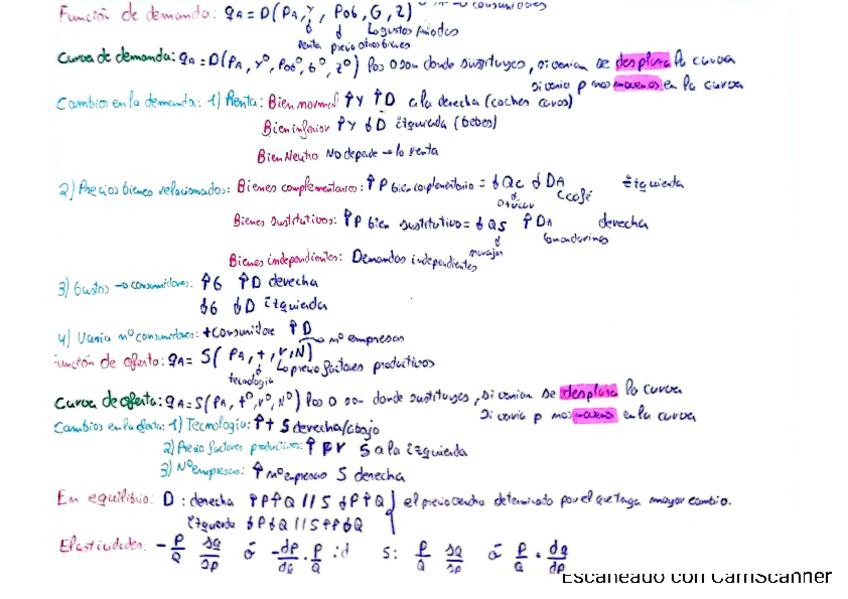 Función de demanda: qA = D(PA, Y, Pob, G, Z) → consumidores
renta precio otros bienes Gustos/modas
Curva de demanda: qA = D(PA, Y⁰, Pob⁰, G⁰, Z⁰) los 0 son donde sustituyes, si varian se desplaza la curva
si varia p nos movemos en la curva
Cambios en la demanda: 1) Renta: Bien normal ↑Y ↑D a la derecha (coches caros)
Bien inferior ↑Y ↓D izquierda (bebes)
Bien Neutro No depende → la renta
2) Precios bienes relacionados: Bienes complementarios: ↑P bien complementario = ↓Qc ↓DA izquierda
azucar café
Bienes sustitutivos: ↑P bien sustitutivo = ↓Qs ↑DA derecha
naranjas mandarinas
Bienes independientes: Demandas independientes
3) Gustos → consumidores: ↑G ↑D derecha
↓G ↓D izquierda
4) Varia nº consumidores: + consumidore ↑D
unción de oferta: qA = S(PA, t, r, N) → nº empresas
tecnologia precio factores productivos
Curva de oferta: qA = S(PA, t⁰, r⁰, N⁰) los 0 son donde sustituyes, si varian se desplaza la curva
Si varia p nos movemos en la curva
Cambios en la oferta: 1) Tecnologia: ↑t S derecha/abajo
2) Precio factores productivos: ↑ r S a la izquierda
3) Nº empresas: ↑ nº empresas S derecha
En equilibrio: D: derecha ↑P↑Q // S ↓P↑Q } el precio determinado por el que tenga mayor cambio.
izquierda ↓P↓Q // S ↑P↓Q
Elasticidades: -P/Q ∂Q/∂P ó -dP/dQ · P/Q : d S: P/Q ∂Q/∂P ó P/Q · dQ/dP
Escaneado con CamScanner